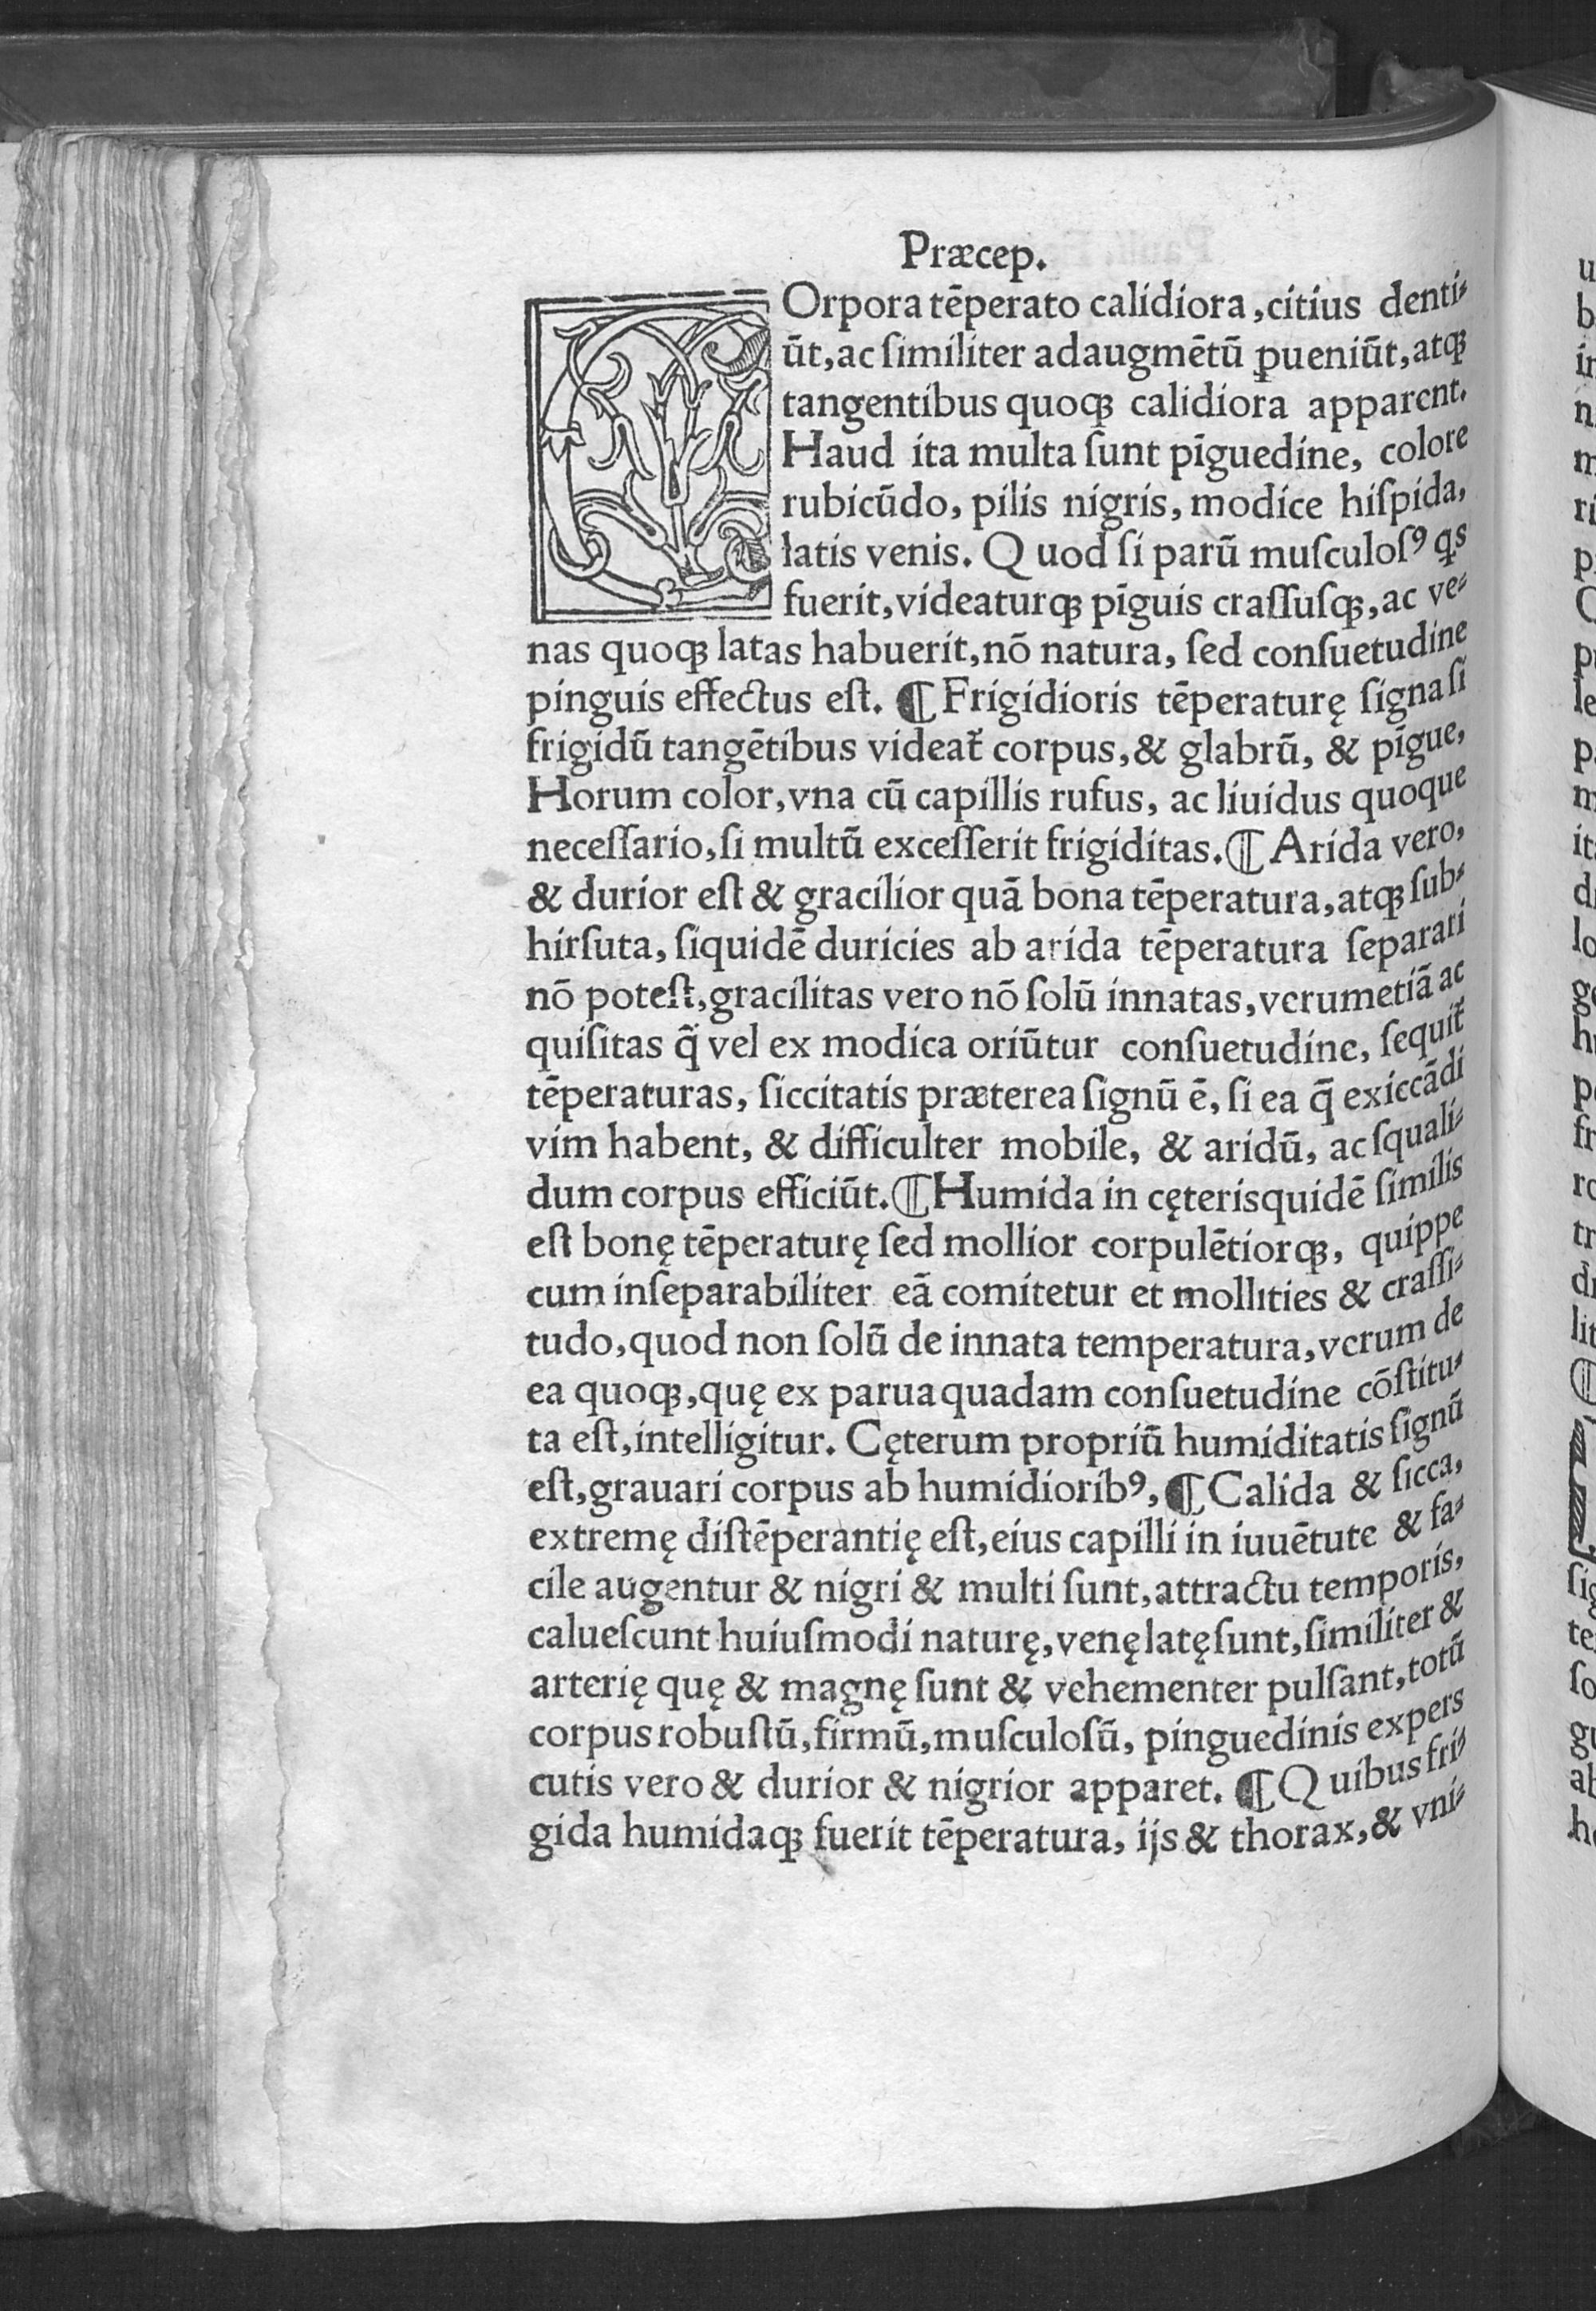 Præcep.
COrpora tēperato calidiora, citius denti⸗
ūt, ac ſimiliter adaugmētū ꝑueniūt, atqꝫ
tangentibus quoqꝫ calidiora apparent.
Haud ita multa ſunt pīguedine, colore
rubicūdo, pilis nigris, modice hiſpida,
latis venis. Quod ſi parū muſculoſꝰ qs
fuerit, videaturqꝫ pīguis craſſuſqꝫ, ac ve⸗
nas quoqꝫ latas habuerit, nō natura, ſed conſuetudine
pinguis effectus eſt. ¶ Frigidioris tēperaturę ſigna ſi
frigidū tangētibus videat᷑ corpus, & glabrū, & pīgue,
Horum color, vna cū capillis rufus, ac liuidus quoque
neceſſario, ſi multū exceſſerit frigiditas. ¶ Arida vero,
& durior eſt & gracilior quā bona tēperatura, atqꝫ ſub⸗
hirſuta, ſiquidē duricies ab arida tēperatura ſeparari
nō poteſt, gracilitas vero nō ſolū innatas, verumetiā ac
quiſitas q̄ vel ex modica oriūtur conſuetudine, ſequit᷑
tēperaturas, ſiccitatis præterea ſignū ē, ſi ea q̄ exiccādi
vim habent, & difficulter mobile, & aridū, ac ſquali⸗
dum corpus efficiūt. ¶ Humida in cęterisquidē ſimilis
eſt bonę tēperaturę ſed mollior corpulētiorqꝫ, quippe
cum inſeparabiliter eā comitetur et mollities & craſſi⸗
tudo, quod non ſolū de innata temperatura, verum de
ea quoqꝫ, quę ex parua quadam conſuetudine cōſtitu⸗
ta eſt, intelligitur. Cęterum propriū humiditatis ſignū
eſt, grauari corpus ab humidioribꝰ, ¶ Calida & ſicca,
extremę diſtēperantię eſt, eius capilli in iuuētute & fa⸗
cile augentur & nigri & multi ſunt, attractu temporis,
calueſcunt huiuſmodi naturę, venę latę ſunt, ſimiliter &
arterię quę & magnę ſunt & vehementer pulſant, totū
corpus robuſtū, firmū, muſculoſū, pinguedinis expers
cutis vero & durior & nigrior apparet. ¶ Quibus fri⸗
gida humidaqꝫ fuerit tēperatura, ijs & thorax, & vni⸗